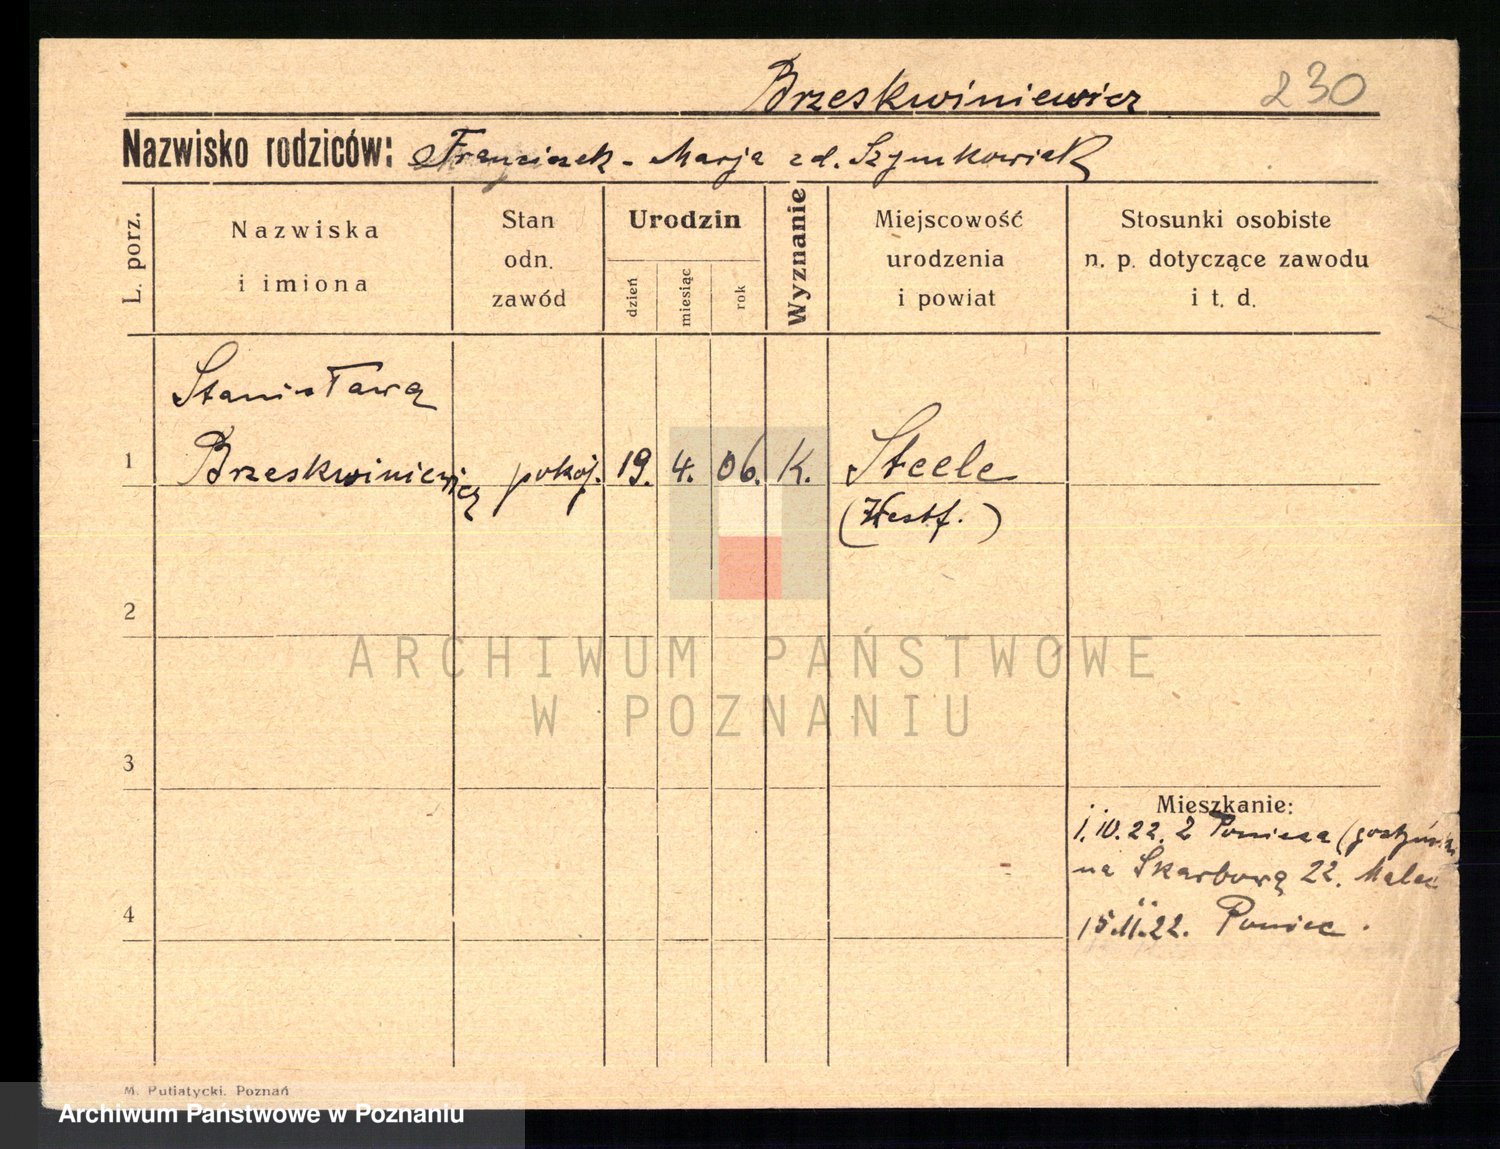 Brzeskwiniewicz 230
Nazwisko rodziców: Franciszek - Marja zd. Szymkowiak
L. porz.
Nazwiska
i imiona
Stan
odn.
zawód
Urodzin
dzień
miesiąc
rok
Wyznanie
Miejscowość
urodzenia
i powiat
Stosunki osobiste
n. p. dotyczące zawodu
i t. d.
Stanisława
1 Brzeskwiniewicz pokoj. 19. 4. 06. K. Steele
(Westf.)
2
ARCHIWUM PAŃSTWOWE
W POZNANIU
3
Mieszkanie:
1.IV.22. z Ponieca
na Skarbową 22.
4
15.II.22. Poniec.
M. Putiatycki. Poznań
Archiwum Państwowe w Poznaniu